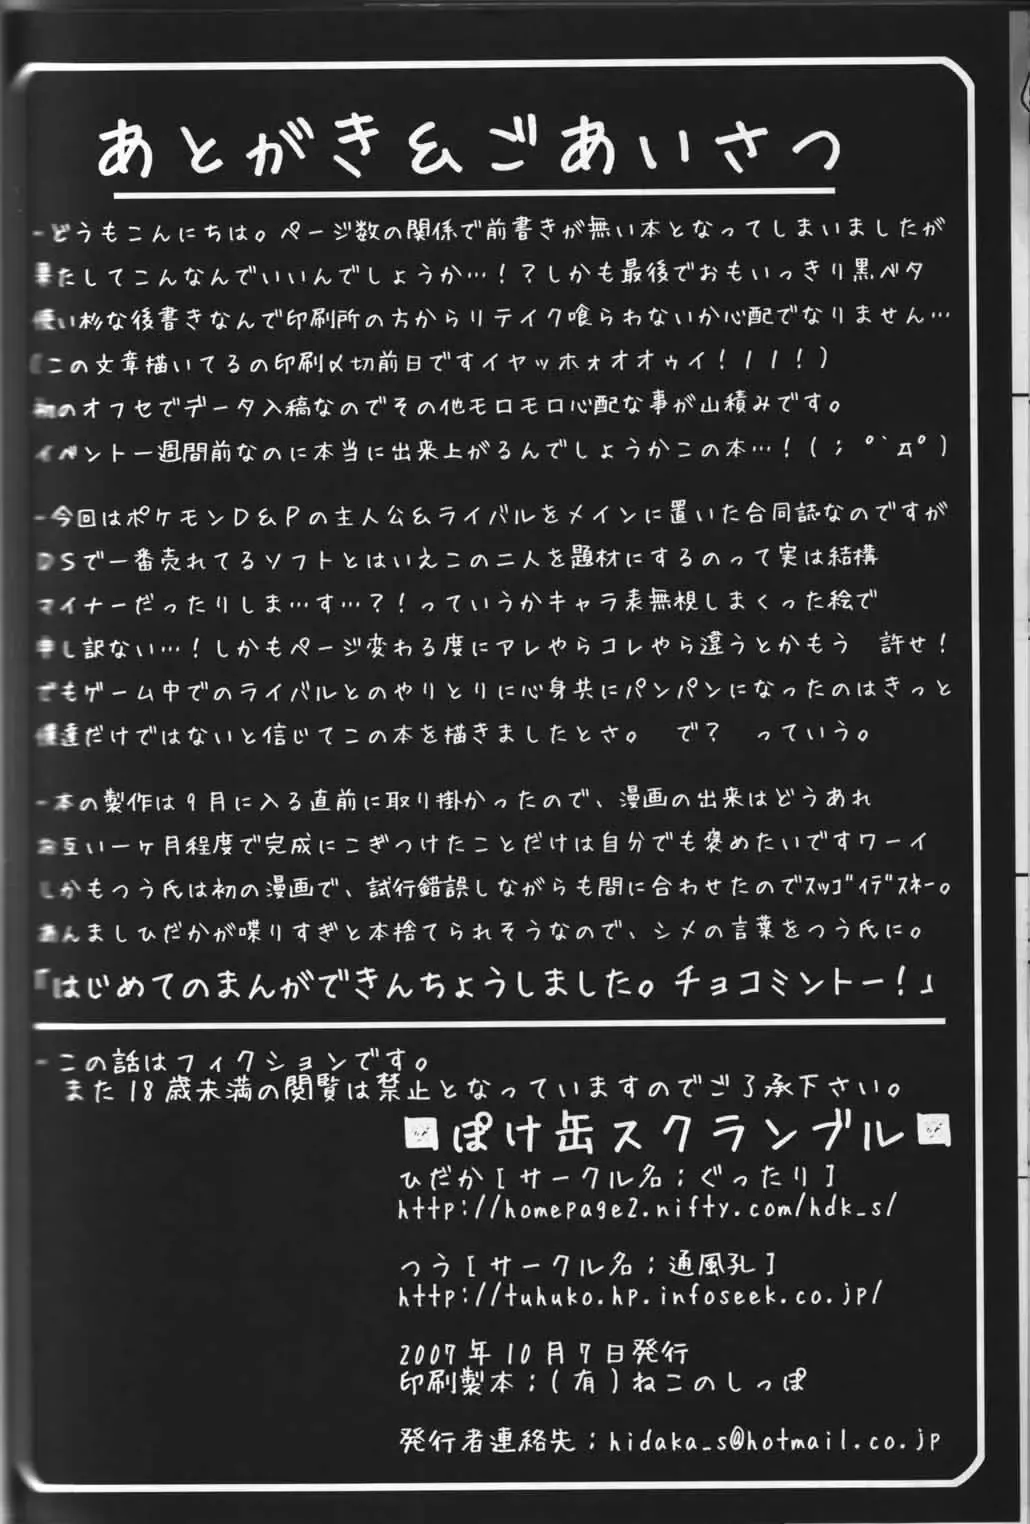 あとがき&ごあいさつ
-どうもこんにちは。ページ数の関係で前書きが無い本となってしまいましたが
果たしてこんなんでいいんでしょうか…!?しかも最後でおもいっきり黒ベタ
使い杉な後書きなんで印刷所の方からリテイク喰らわないか心配でなりません…
(この文章描いてるの印刷〆切前日ですイヤッホォオオゥイ!!!!)
初のオフセでデータ入稿なのでその他モロモロ心配な事が山積みです。
イベント一週間前なのに本当に出来上がるんでしょうかこの本…!(;゚`д゚)
-今回はポケモンD&Pの主人公&ライバルをメインに置いた合同誌なのですが
DSで一番売れてるソフトとはいえこの二人を題材にするのって実は結構
マイナーだったりしま…す…?!っていうかキャラ表無視しまくった絵で
申し訳ない…!しかもページ変わる度にアレやらコレやら違うとかもう 許せ!
でもゲーム中でのライバルとのやりとりに心身共にパンパンになったのはきっと
僕達だけではないと信じてこの本を描きましたとさ。 で? っていう。
-本の製作は9月に入る直前に取り掛かったので、漫画の出来はどうあれ
お互い一ヶ月程度で完成にこぎつけたことだけは自分でも褒めたいですワーイ
しかもつう氏は初の漫画で、試行錯誤しながらも間に合わせたのでｽｯｺﾞｲﾃﾞｽﾈｰ。
あんましひだかが喋りすぎと本捨てられそうなので、シメの言葉をつう氏に。
「はじめてのまんができんちょうしました。チョコミントー!」
-この話はフィクションです。
また18歳未満の閲覧は禁止となっていますのでご了承下さい。
ぽけ缶スクランブル
ひだか[サークル名;ぐったり]
http://homepage2.nifty.com/hdk_s/
つう[サークル名;通風孔]
http://tuhuko.hp.infoseek.co.jp/
2007年10月7日発行
印刷製本;(有)ねこのしっぽ
発行者連絡先;hidaka_s@hotmail.co.jp